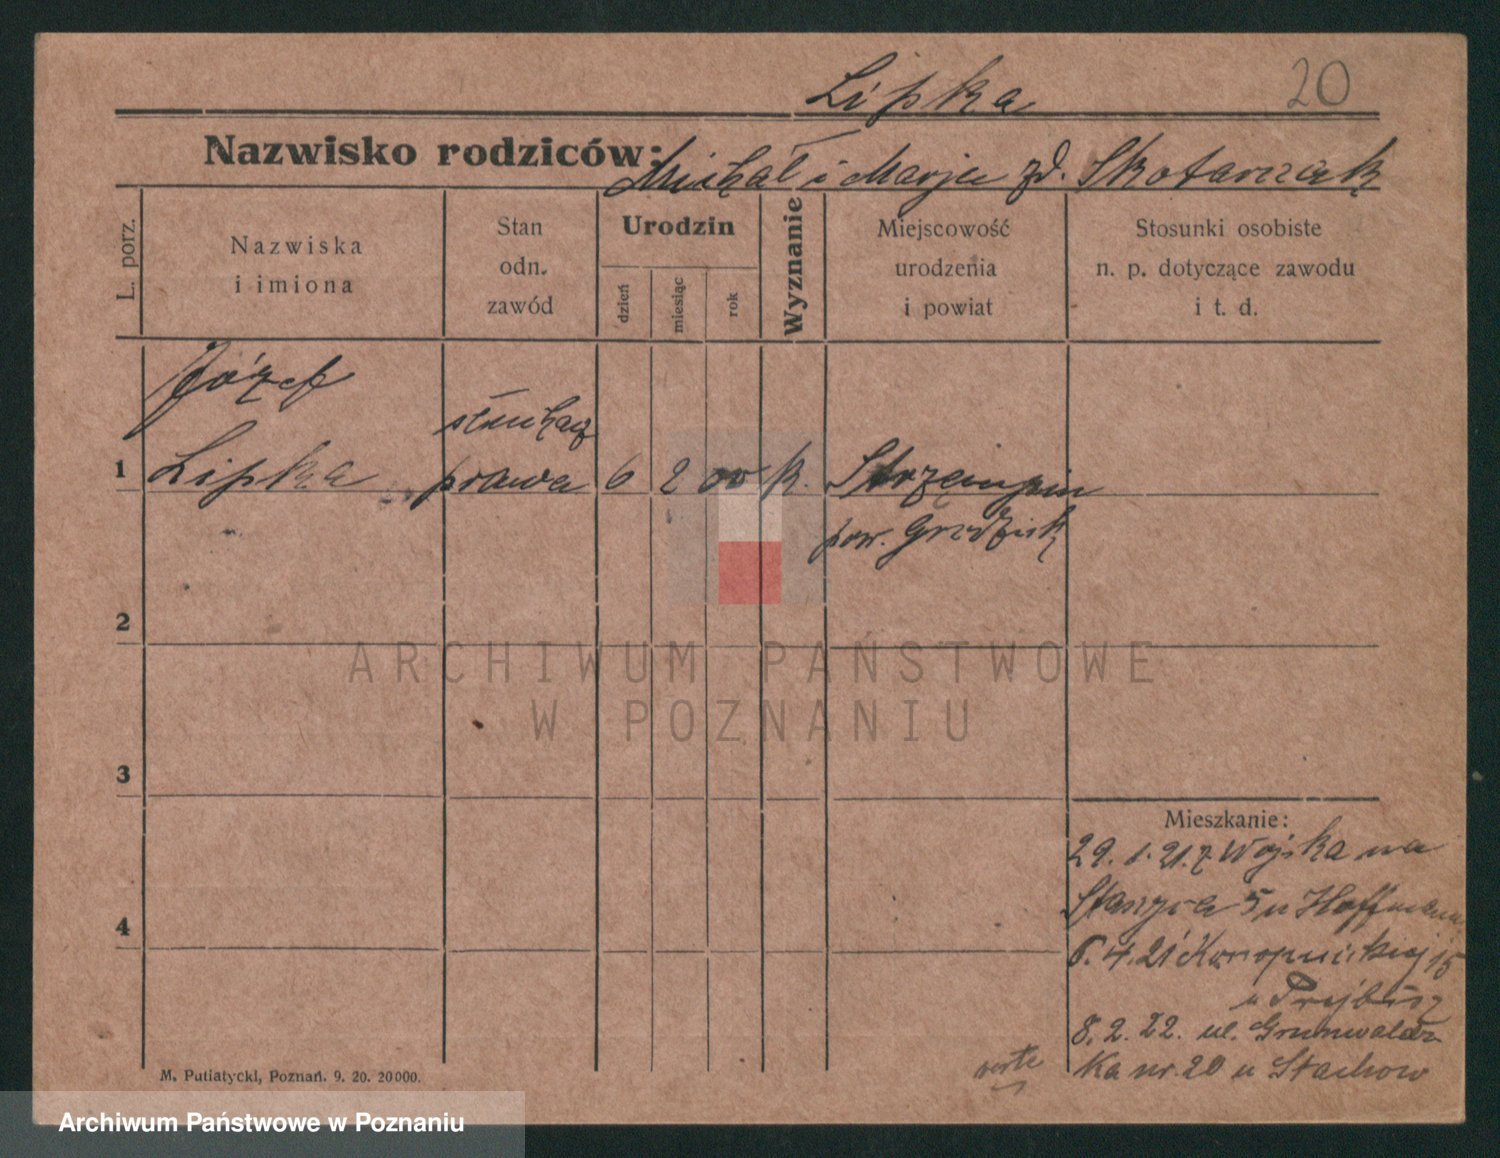 Lipka 20
Nazwisko rodziców: Michał i Marja zd. Skotarczak
L. porz.
Nazwiska
i imiona
Stan
odn.
zawód
Urodzin
dzień
miesiąc
rok
Wyznanie
Miejscowość
urodzenia
i powiat
Stosunki osobiste
n. p. dotyczące zawodu
i t. d.
Józef
słuchacz
1 Lipka prawa 6 2 00 k. Strzempin
pow. Grodzisk
2
ARCHIWUM PAŃSTWOWE
W POZNANIU
3
Mieszkanie:
29. 1. 21. z Wojska na
4 Staszyca 5 u Hoffmann
6. 4. 21 Konopnickiej 15
u
8. 2. 22. ul. Grunwaldz
ka nr. 20 u Stachow
verte
M. Putiatycki, Poznań. 9. 20. 20000.
Archiwum Państwowe w Poznaniu